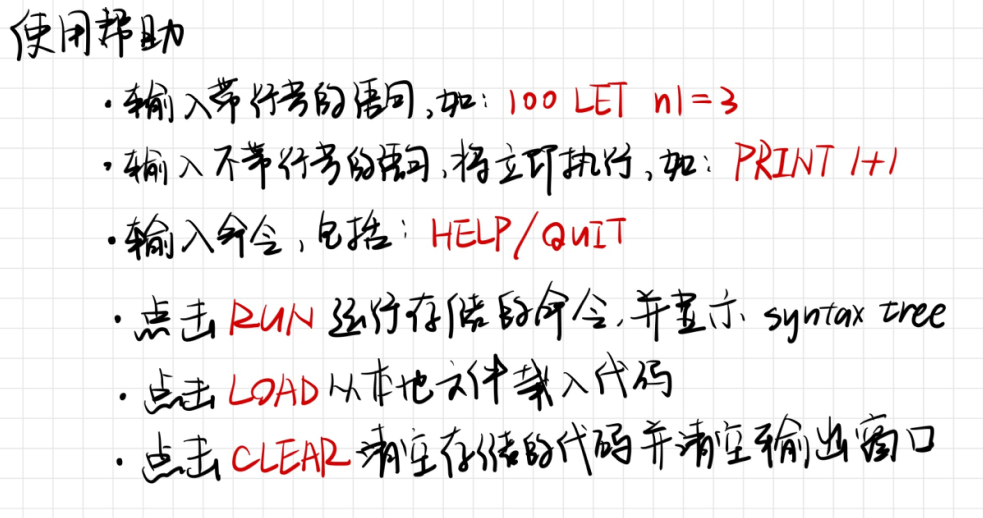 使用帮助
·输入带行号的语句,如: 100 LET n1=3
·输入不带行号的语句,将立即执行,如: PRINT 1+1
·输入命令,包括: HELP/QUIT
·点击 RUN 运行存储的命令,并显示 syntax tree
·点击 LOAD 从本地文件载入代码
·点击 CLEAR 清空存储的代码并清空输出窗口